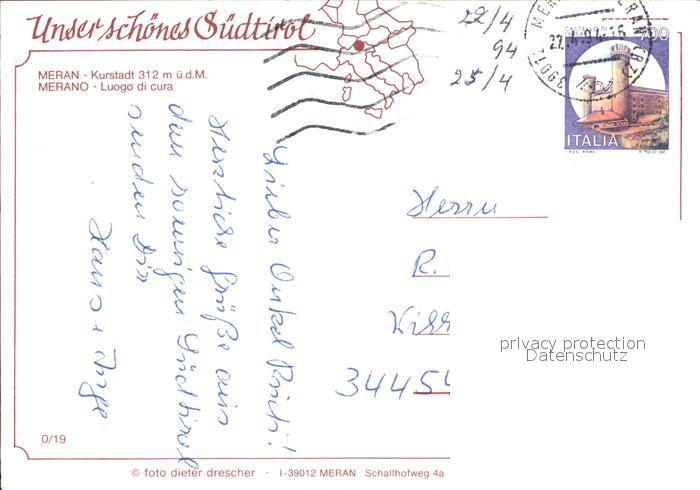 Unser schönes Südtirol
MERAN - Kurstadt 312 m ü.d.M.
MERANO - Luogo di cura
22/4
94
25/4
22.4.94
39012
700
ITALIA
Lieber Onkel Rudi!
Herzliche Grüße aus
dem sonnigen Südtirol
senden Dir
Hans + Inge
Herrn
R.
34454
privacy protection
Datenschutz
0/19
© foto dieter drescher · I-39012 MERAN Schallhofweg 4a